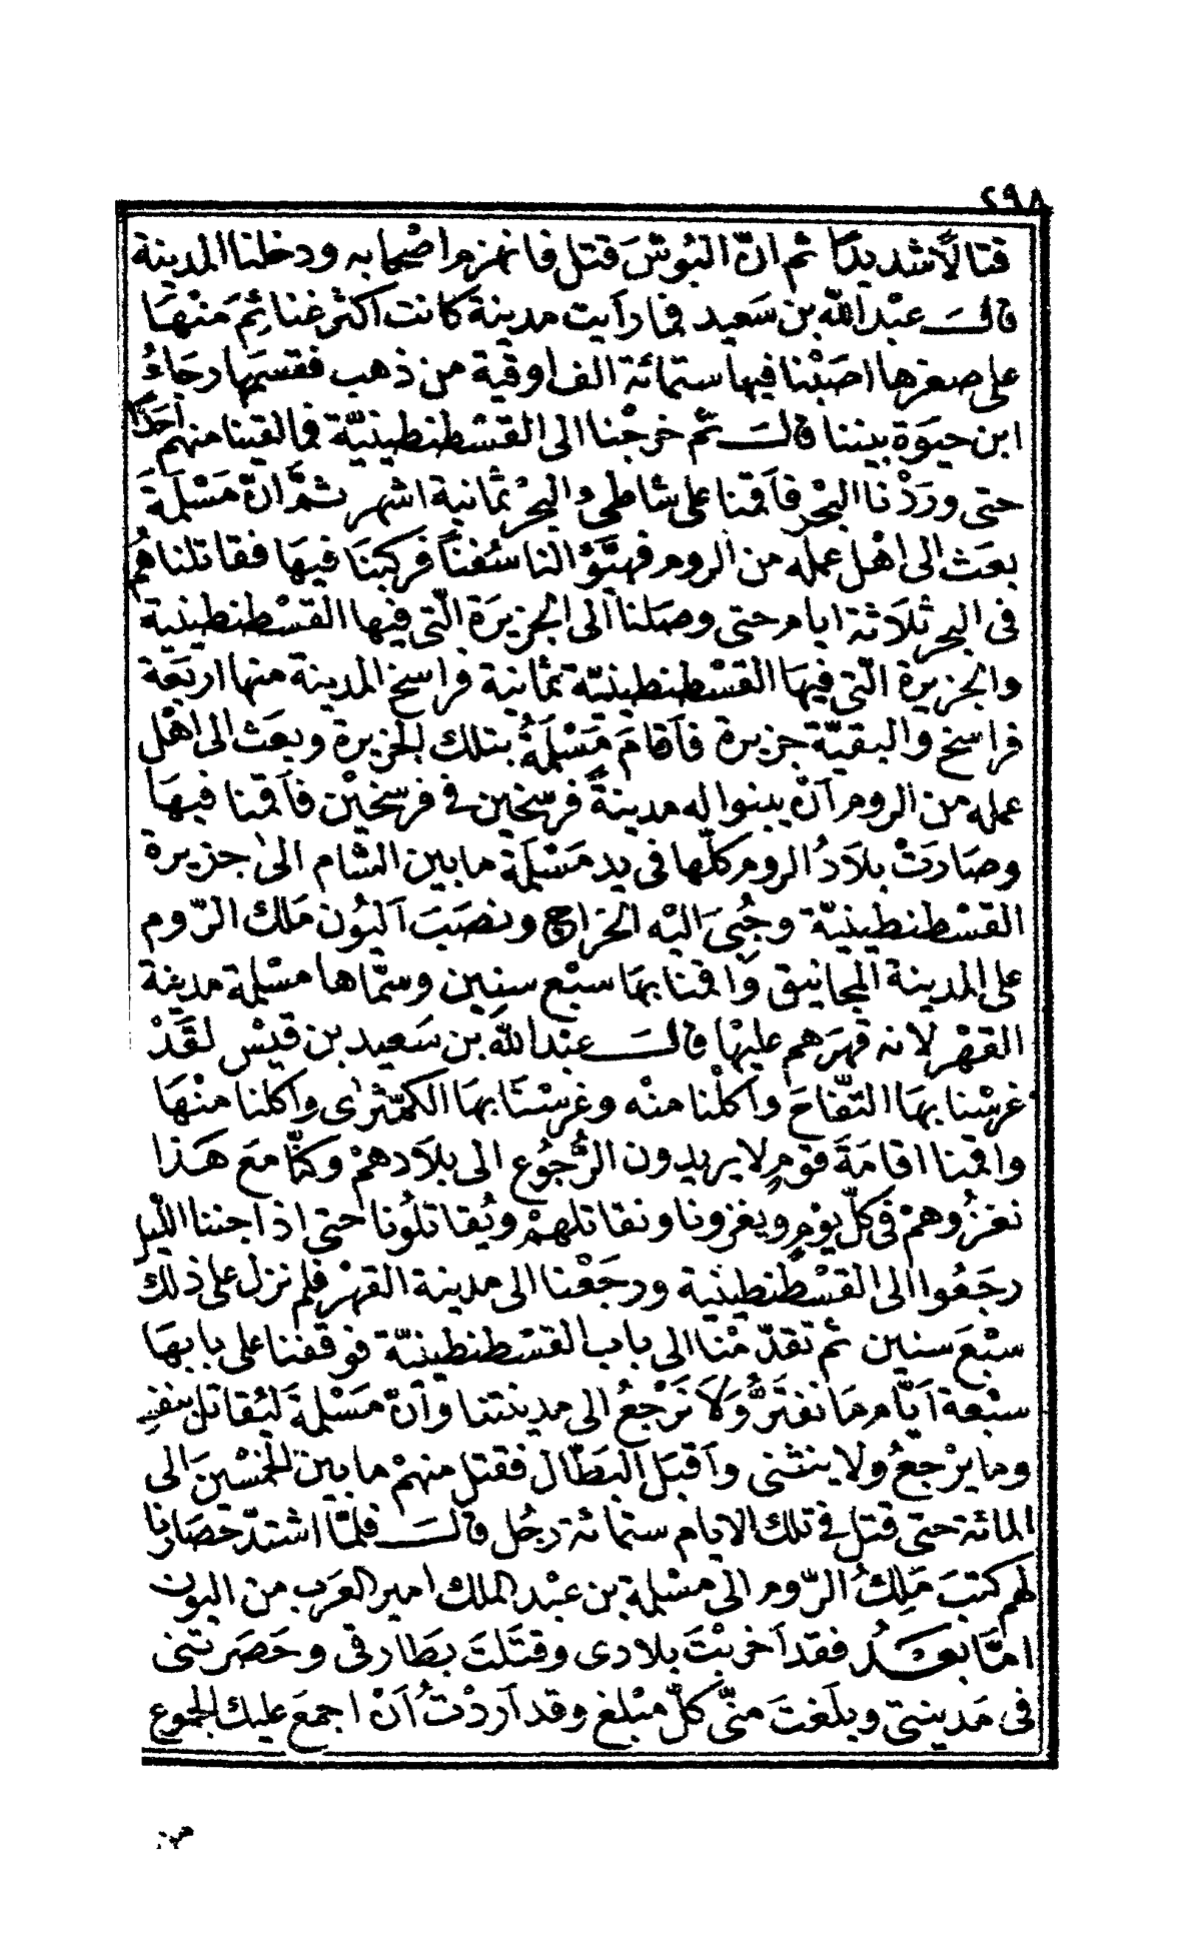 ٢٩٨
قتالًا شديدًا ثم انّ البُوشَ قتل فانهزم اصْحابه ودخلنا المدينة
قالــ عبْد اللّه بن سَعيد فما رأيت مدينة كانت اكثر غنائِمَ مَنْهَا
على صغرها اصَبْنا فيها ستمائة الف اوقية من ذهب فقسمها رجَاءُ
ابن حيوَة بيننا قالــَ ثم خرجْنا الى القسْطنطينيّة فما لقينا منهم احَدًا
حتى وردْنا البحْر فأقمنا على شاطئ البحْر ثمانية اشهر ثمَّ انّ مَسْلَمَةَ
بعَث الى اهْل عمله من الروم فهيَّؤا لنا سُفنًا فركبنَا فيهَا فقاتلناهُم
فى البحر ثلَاثة ايام حتى وصَلنا الى الجزيرَة الّتى فيها القسْطنطينية
والجزيرة الّتى فيهَا القسْطنطينيّة ثمانية فراسخ المدينة منها اربَعَة
فراسخ والبقيّة جزيرة فأقامَ مَسْلَمَةُ بتلك الجزيرة وبعَث الى اهْل
عمله من الروم أنّ يبنوا له مدينةً فرسخين في فرسخيْن فأقمنا فيهَا
وصَارَتْ بلَادُ الروم كلّها فى يد مَسْلَمَة ما بين الشام الىٰ جزيرة
القسْطنطينيّة وجُبىَ اليْه الخرَاج ونصَبَ أليُون مَلك الرّوم
على المدينة المجانيق وأقمنا بهَا سبْع سنين وسمّاها مسْلمة مدينة
القهْر لانه قهرَهم عليْها قالــَ عبْد اللّه بن سَعيد بن قيْس لقَدْ
غرسْنا بهَا التفّاحَ وأكلْنا منْه وغرسْنَا بهَا الكمّثرىٰ واكلنا منْهَا
واقمنا اقامَةَ قومٍ لا يريدون الرُّجوُع الى بلَادهمْ وكنّا معَ هَذا
نغزُوهمْ فى كلّ يوْمٍ ويغزونا ونقاتلهمْ ويُقاتلُونا حتى اذا جننا الليْل
رجَعُوا الى القسْطنطينية ورجَعْنا الى مدينة القهْر فلم نزل على ذلك
سبْعَ سنين ثم تقدّمْنا الى باب القسْطنطينيّة فوقفنا على بابهَا
سبْعة أيّام مَا نفتَرُّ وَلَا نَرْجعُ الى مدينتنا وأنّ مَسْلمَة لَيُقاتل بنفسه
وما يرْجعُ ولا ينثنى وأقبَل البَطّال فقتل منهمْ ما بين الخمْسينَ الى
المائة حتى قتل في تلك الايام ستمائة رجُل قالــَ فلمّا اشتدّ حصَارنا
لهم كتبَ مَلِكُ الرّوم الى مسْلمة بن عبْد الملك امير العَرب من اليون
امّا بعــَدُ فقد أخربْتَ بلادى وقتَلتَ بَطارقى وحَصَرتنى
فى مَدينتى وبلَغتَ منّى كلّ مبْلغ وقد أرَدْتُ أَنْ اجمعَ عليك الجموع
من